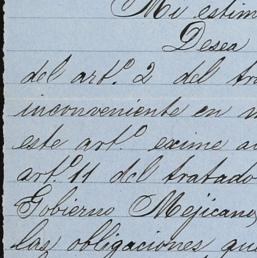 Mi estim
Desea
del artº 2 del tra
inconveniente en
este artº exime a
artº 11 del tratado
Gobierno Mejicano,
las obligaciones que